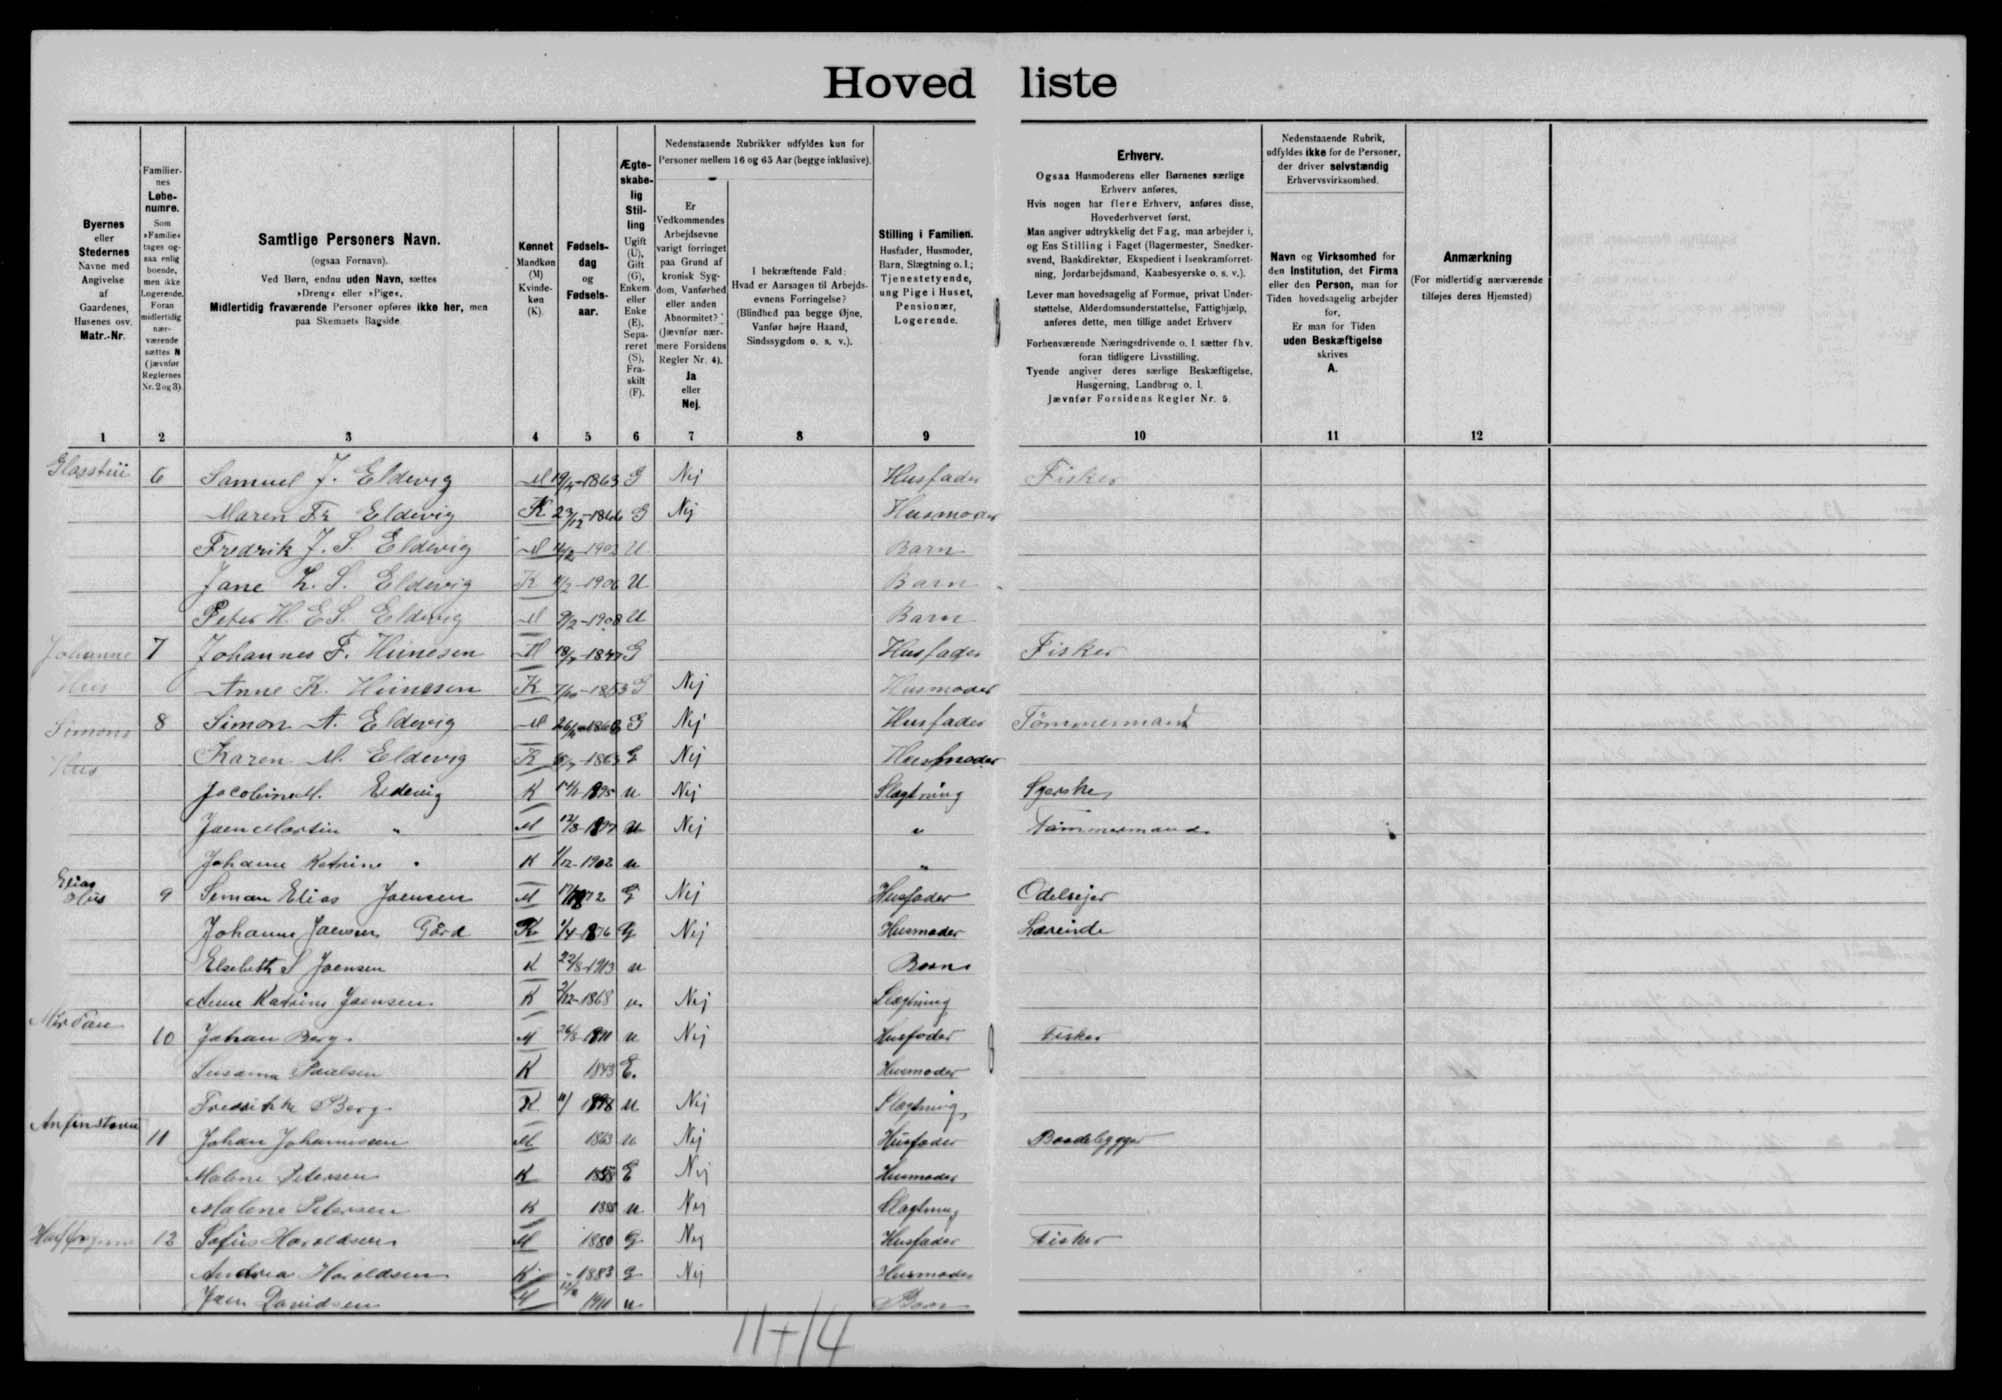 Hovedliste
Byernes eller Stedernes Navne med Angivelse af Gaardenes, Husenes osv. Matr.-Nr.
Familiernes Løbenumre. Som »Familie« tages ogsaa enlig boende, men ikke Logerende. Foran midlertidig nærværende sættes N (jævnfør Reglernes Nr. 2 og 3).
Samtlige Personers Navn. (ogsaa Fornavn). Ved Børn, endnu uden Navn, sættes »Dreng« eller »Pige«. Midlertidig fraværende Personer opføres ikke her, men paa Skemaets Bagside.
Kønnet Mandkøn (M) Kvindekøn (K).
Fødselsdag og Fødselsaar.
Ægteskabelig Stilling Ugift (U), Gift (G), Enkem. eller Enke (E), Separeret (S), Fraskilt (F).
Nedenstaaende Rubrikker udfyldes kun for Personer mellem 16 og 65 Aar (begge inklusive).
Er Vedkommendes Arbejdsevne varigt forringet paa Grund af kronisk Sygdom, Vanførhed eller anden Abnormitet? (Jævnfør nærmere Forsidens Regler Nr. 4). Ja eller Nej.
I bekræftende Fald: Hvad er Aarsagen til Arbejdsevnens Forringelse? (Blindhed paa begge Øjne, Vanfør højre Haand, Sindssygdom o. s. v.).
Stilling i Familien. Husfader, Husmoder, Barn, Slægtning o. l.; Tjenestetyende, ung Pige i Huset, Pensionær, Logerende.
Erhverv.
Ogsaa Husmoderens eller Børnenes særlige Erhverv anføres.
Hvis nogen har flere Erhverv, anføres disse, Hovederhvervet først.
Man angiver udtrykkelig det Fag, man arbejder i, og Ens Stilling i Faget (Bagermester, Snedkersvend, Bankdirektør, Ekspedient i Isenkramforretning, Jordarbejdsmand, Kaabesyerske o. s. v.).
Lever man hovedsagelig af Formue, privat Understøttelse, Alderdomsunderstøttelse, Fattighjælp, anføres dette, men tillige andet Erhverv
Forhenværende Næringsdrivende o. l. sætter fhv. foran tidligere Livsstilling.
Tyende angiver deres særlige Beskæftigelse, Husgerning, Landbrug o. l.
Jævnfør Forsidens Regler Nr. 5.
Nedenstaaende Rubrik, udfyldes ikke for de Personer, der driver selvstændig Erhvervsvirksomhed.
Navn og Virksomhed for den Institution, det Firma eller den Person, man for Tiden hovedsagelig arbejder for.
Er man for Tiden uden Beskæftigelse skrives A.
Anmærkning (For midlertidig nærværende tilføjes deres Hjemsted)
1 2 3 4 5 6 7 8 9 10 11 12
6 Samuel J. Eldevig M 1863 G Nej Husfader Fisker
Maren Fr Eldevig K G Nej Husmoder
Fredrik J. S. Eldevig M U Barn
Jane L. S. Eldevig K 1906 U Barn
Peter H. E S. Eldevig M 1908 U Barn
Johanne 7 Johannes F. Heinesen M G Husfader Fisker
Hus Anne K. Heinesen K 1853 G Nej Husmoder
Simons 8 Simon A. Eldevig M G Nej Husfader Tömmermand
Hus Karen M. Eldevig K 1863 G Nej Husmoder
Jacobina M. Eldevig K 1895 u Nej Slægtning Syerske
Joen Martin " M u Nej " Tömmermand
Johanne Katrine " K 1/12-1902 u "
Elias Hus 9 Simon Elias Joensen M G Nej Husfader Odelsejer
Johanne Joensen Gärd K 1/4-1876 G Nej Husmoder Lærinde
Elsebeth S Joensen K 22/8-1913 u Barn
Anne Katrine Joensen K 1868 u. Nej Slægtning
10 Johan Berg. M u Nej Husfader Fisker
Susanna Paulsen K 1843 E. Husmoder
Fredrikke Berg K u Nej Slægtning
Anfinstovu 11 Johan Johannesen M 1863 u Nej Husfader Baadebygger
Malene Petersen K E Nej Husmoder
Malene Petersen K u Nej Slægtning
12 Sofus Haroldsen M 1880 G Nej Husfader Fisker
Andrea Haroldsen K - 1883 G Nej Husmoder
Joen Davidsen M 1911 u Barn
11+14